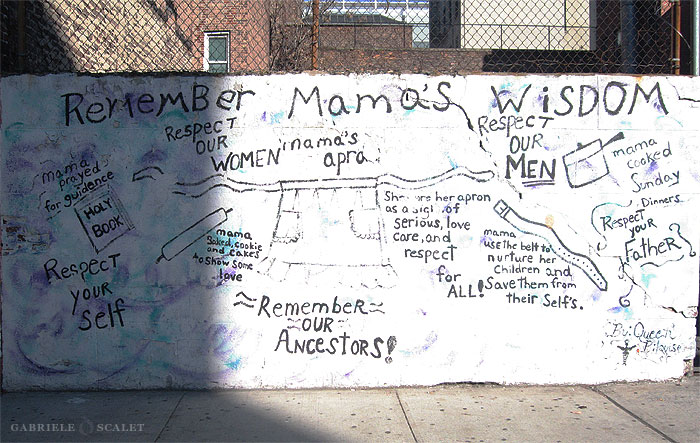 Remember Mama's Wisdom
Respect
our
women
mama's
apra
Respect
our
Men
mama
cooked
Sunday
Dinners
mama
prayed
for guidence
Holy
Book
Respect
your
self
mama
Baked, cookie
and cakes
to show some
love
her apron
as a sign of
serious, love
care, and
respect
for
ALL!
mama
use the belt to
nurture her
children and
save them from
their self's.
Respect
your
Father
Remember
our
Ancestors!
By: Queen
GABRIELE SCALET